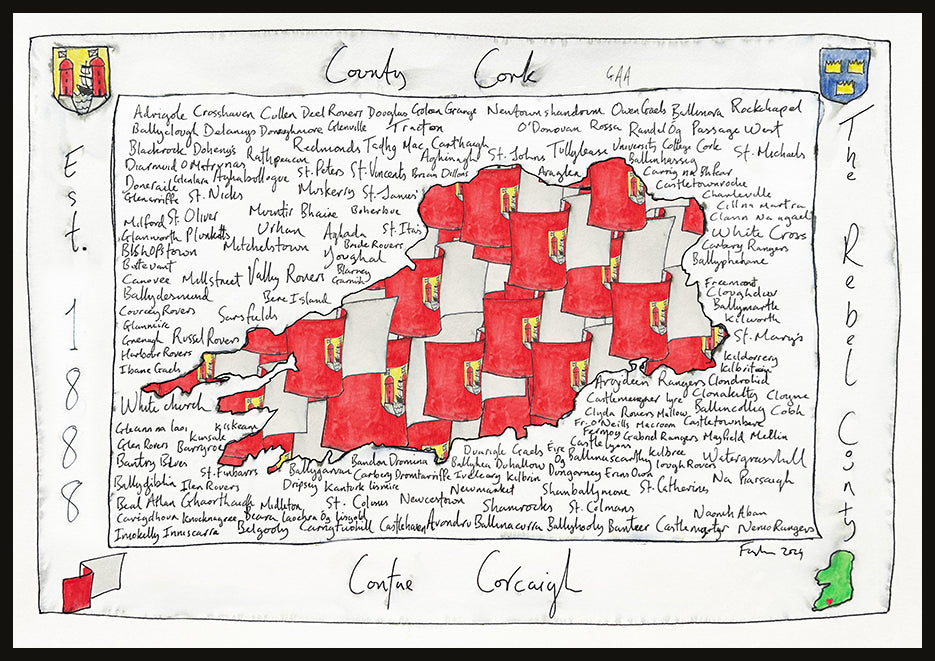 County Cork GAA
Est. 1888
The Rebel County
Adrigole Crosshaven Cullen Deel Rovers Douglas Goleen Grange Newtownshandrum Owen Gaels Rockchapel
Ballyclough Delanys Donoughmore Glenville Tracton O'Donovan Rossa Randal Óg Passage West
Blackrock Dohenys Rathpeacon Redmonds Tadhg Mac Carthaigh St. Johns Tullylease University College Cork St. Michaels
Diarmuid O Mathunas Aghinagh Araglen Ballinhassig
Doneraile Glenlara Aghabollogue St. Peters St. Vincents Brian Dillons Carrig na Bhfear
Glengarriffe St. Nicks Muskerry St. James' Castletownroche
Charleville
Milford St. Oliver Muintir Bhaire Boherbue Cill na Martra
Glanworth Plunketts Urhan Aghada St. Ita's Clann na nGael
Bishopstown Mitchelstown Bride Rovers White Cross
Buttevant Youghal Carbery Rangers
Canovee Millstreet Valley Rovers Blarney Ballyphehane
Ballydesmond Bere Island Freemount
Courcey Rovers Sarsfields Cloughduv
Glanmire Ballymartle
Russel Rovers Kilworth
Harbour Rovers St. Mary's
Ibane Gaels Kildorrery
Kilbrittain
Whitechurch Argideen Rangers Clondrohid
Gleann na Laoi Kiskeam Castlemartyr Lyre Clonakilty Cloyne
Kinsale Clyda Rovers Mallow Ballincollig Cobh
Glen Rovers Barryroe Fr. O'Neills Macroom Castletownbere
Fermoy Gabriel Rangers Mayfield Mellin
Bantry Blues Dunrigle Gaels Éire Óg Castlelyons
St. Finbarrs Ballygarvan Bandon Dromina Ballyhea Duhallow Ballinascarthy Kilbree Watergrasshill
Ilen Rovers Carbery Dromtarriffe Iveleary Kilbrin Lough Rovers
Dripsey Kanturk Lismire Dungourney Erins Own Na Piarsaigh
Beal Athan Ghaorthaidh Midleton St. Colums Newcestown Newmarket Shanballymore St. Catherines
Carrigdhoun Knocknagree Lisgoold Shamrocks St. Colmans Naomh Aban
Imokilly Inniscarra Belgooly Carrigtwohill Castlehaven Avondhu Ballinacurra Ballyhooly Banteer Castlemagner Nemo Rangers
2024
Contae Corcaigh